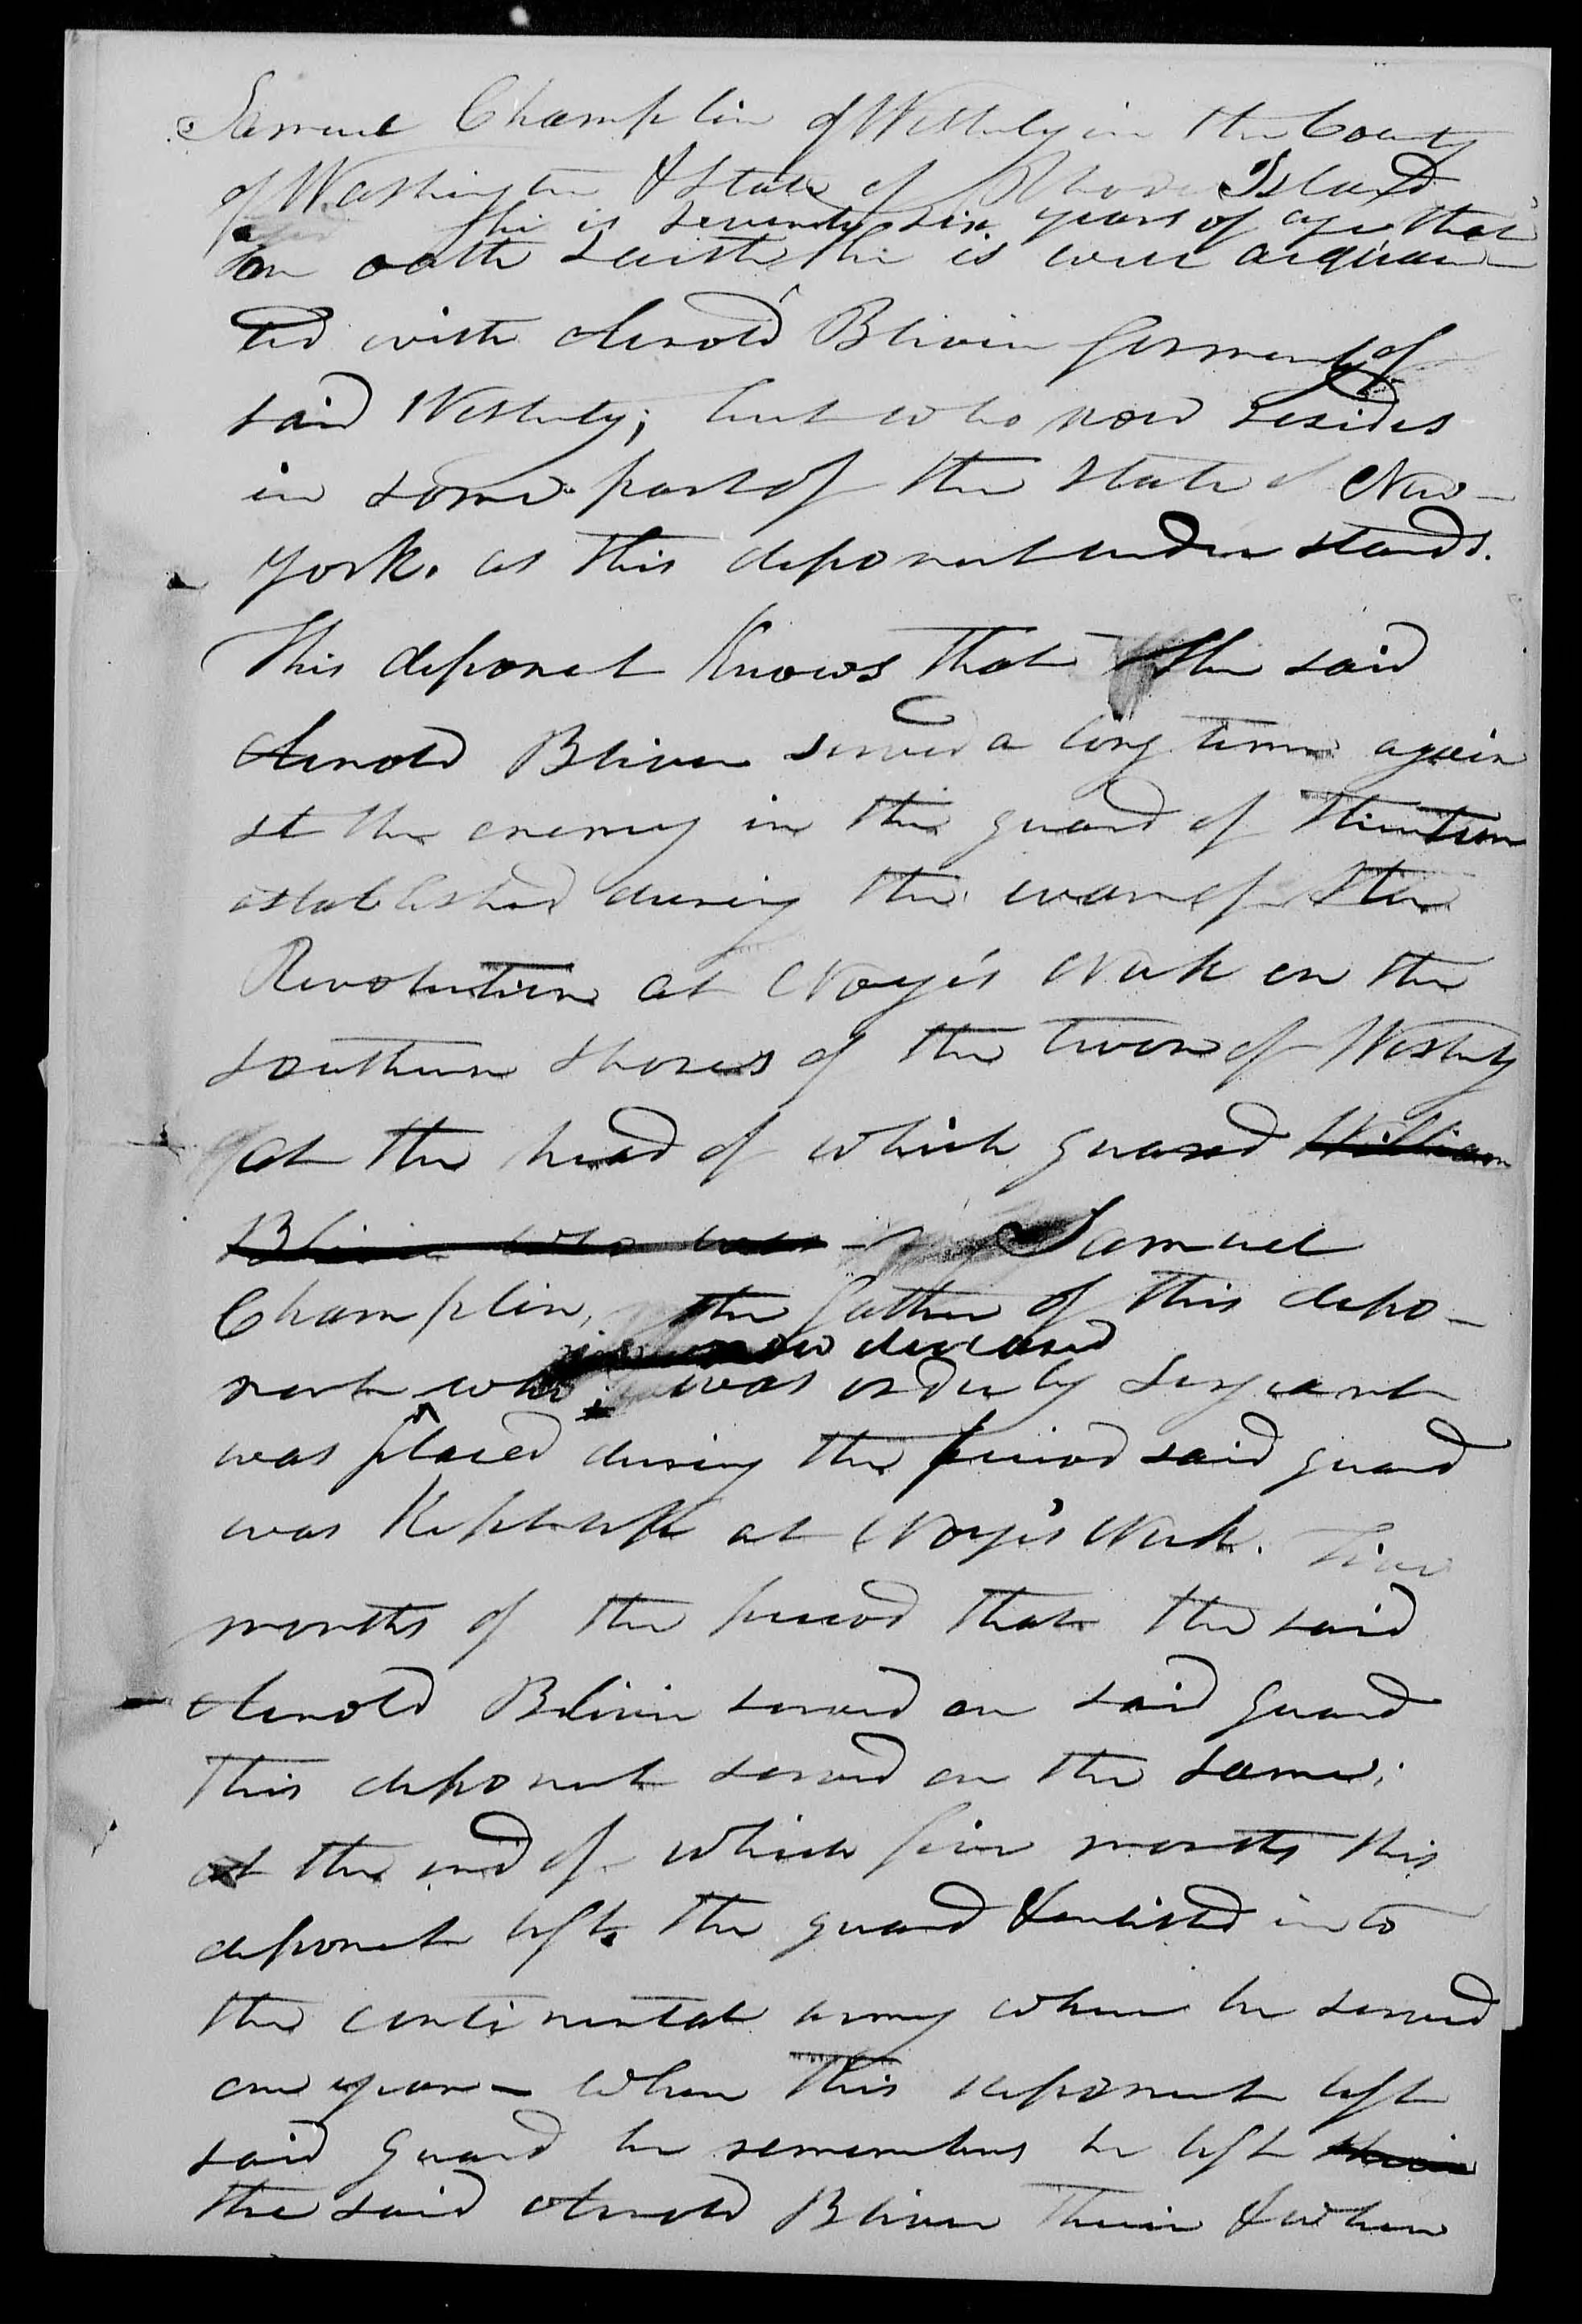 Samuel Champlin of Westerly in the County
of Washington & State of Rhode Island
he is seventy six years of age that
on oath saith he is well acquain-
ted with Arnold Bliven formerly of
said Westerly; but who now resides
in some part of the state of New-
york. as this deponent under stands.
This deponent Knows that the said
Arnold Bliven served a long time again
st the enemy in the guard of
established during the war of the
Revolution at Noye's Neck on the
southern shores of the town of Westerly
at the head of which guard William
Bliven who was Samuel
Champlin, the father of this depo-
is now deceased
nent who was orderly Sergeant
was placed during the period said guard
was Kept up at Noye's Neck. Five
months of the period that the said
Arnold Bliven served on said guard
this deponent served on the same;
at the end of which five months this
deponent left the guard & enlisted into
the continental army where he served
one year - when this deponent left
said guard he remembers he left
the said Arnold Bliven therein & when